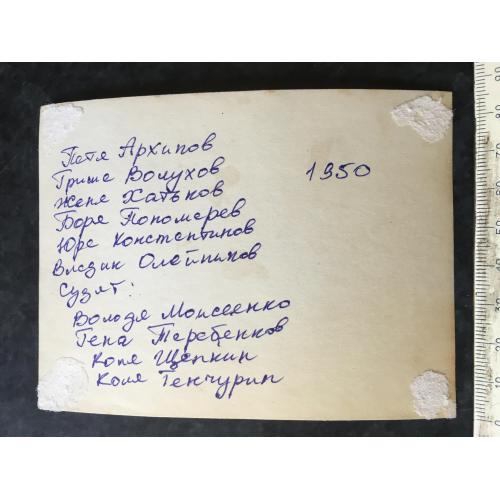 Петя Архипов
Гриша Волухов
Женя Хатьков
Боря Пономарев
Юра Константинов
Владик Олейников
Сидят:
Володя Моисеенко
Гена Теребенков
Коля Щепкин
Коля Генчурин
1950